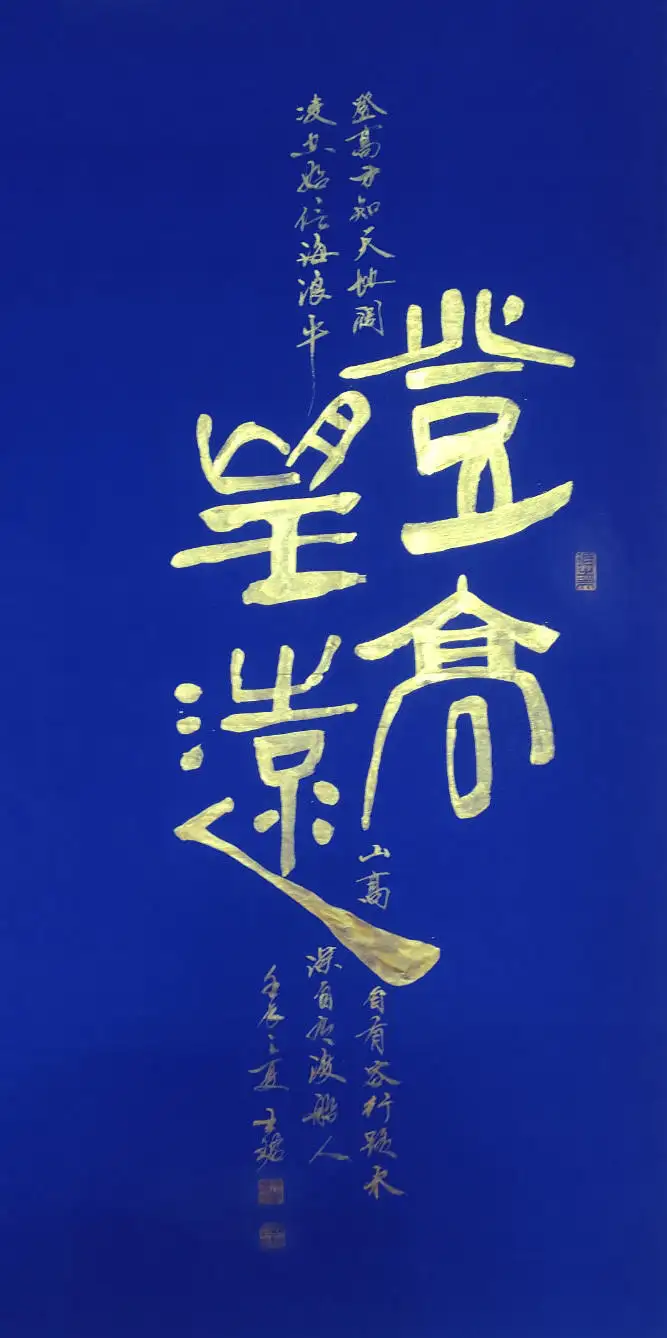 登高
望遠
登高方知天地闊
凌空始信海浪平
山高
自有客行路水
深自有渡船人
壬辰之夏 王